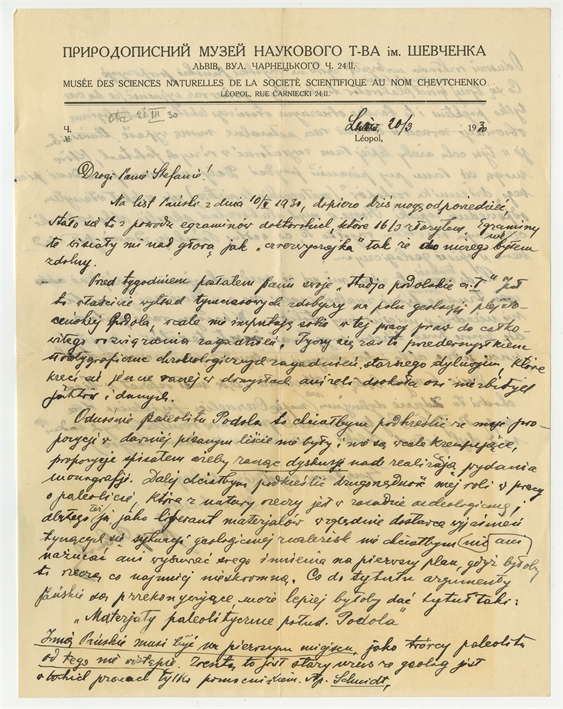 ПРИРОДОПИСНИЙ МУЗЕЙ НАУКОВОГО Т-ВА ім. ШЕВЧЕНКА
ЛЬВІВ, ВУЛ. ЧАРНЕЦЬКОГО Ч. 24/II.
MUSÉE DES SCIENCES NATURELLES DE LA SOCIETÉ SCIENTIFIQUE AU NOM CHEVTCHENKO
LÉOPOL, RUE ČARNIECKI 24/II.
Ч.
№
20/3 1930
Léopol,
Drogi Panie Stefanie!
Na list Pański z dnia 10/ 1930, dopiero dziś mogę odpowiedzieć,
stało się to z powodu egzaminów doktorskich, które 16/3 złożyłem. Egzaminy
te wisiały mi nad głową jak tak że do niczego byłem
zdolny.
Przed tygodniem posłałem Panu swoje „Studja podolskie cz. I" jest
to właściwie wykład tymczasowych zdobyczy na polu geologji plejsto-
ceńskiej Podola, wcale nie w tej pracy praw do całko-
witego rozwiązania zagadnień. Tyczy się zaś to przedewszystkiem
chronologicznych zagadnień starszego dyluwjum, które
kręci się jeszcze w domysłach dookoła osi niezbitych
faktów i danych.
Odnośnie paleolitu Podola to chciałbym podkreślić że moje pro-
pozycje w dawniej pisanym liście nie były i nie są wcale krępujące,
propozycje spisałem żeby zacząć dyskusję nad realizacją wydania
monografji. Dalej chciałbym podkreślić drugorzędność mej roli w pracy
o paleolicie, która z natury rzeczy jest w zasadzie archeologiczną i
dlatego też ja jako materjałów względnie dostawca wyjaśnień
tyczących się sytuacji geologicznej znalezisk nie chciałbym
narzucać ani wysuwać swego imienia na pierwszy plan, gdyż byłoby
to rzeczą co najmniej nieskromną. Co do tytułu argumenty
Pańskie są przekonywujące może lepiej byłoby dać tytuł taki:
„Materjały paleolityczne połud. Podola"
Imię Pańskie musi być na pierwszym miejscu, jako twórcy paleolitu
od tego nie odstąpię. Zresztą to jest stary zwyczaj że geolog jest
w takich pracach tylko pomocnikiem. Np. Schmidt,